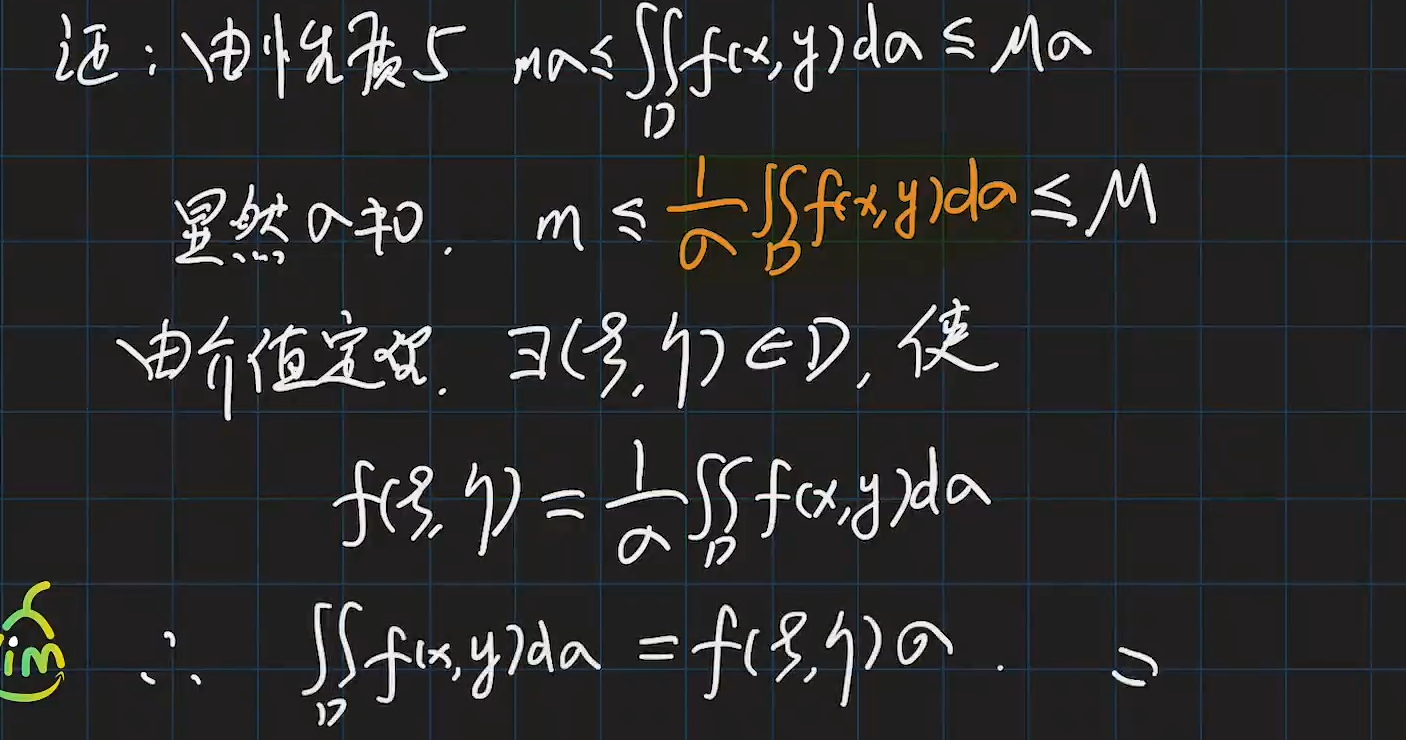 证：由性质5 mσ≤∬_D f(x,y)dσ≤Mσ
显然σ≠0. m≤1/σ∬_D f(x,y)dσ≤M
由介值定理. ∃(ξ,η)∈D, 使
f(ξ,η)=1/σ∬_D f(x,y)dσ
∴ ∬_D f(x,y)dσ=f(ξ,η)σ. =
im